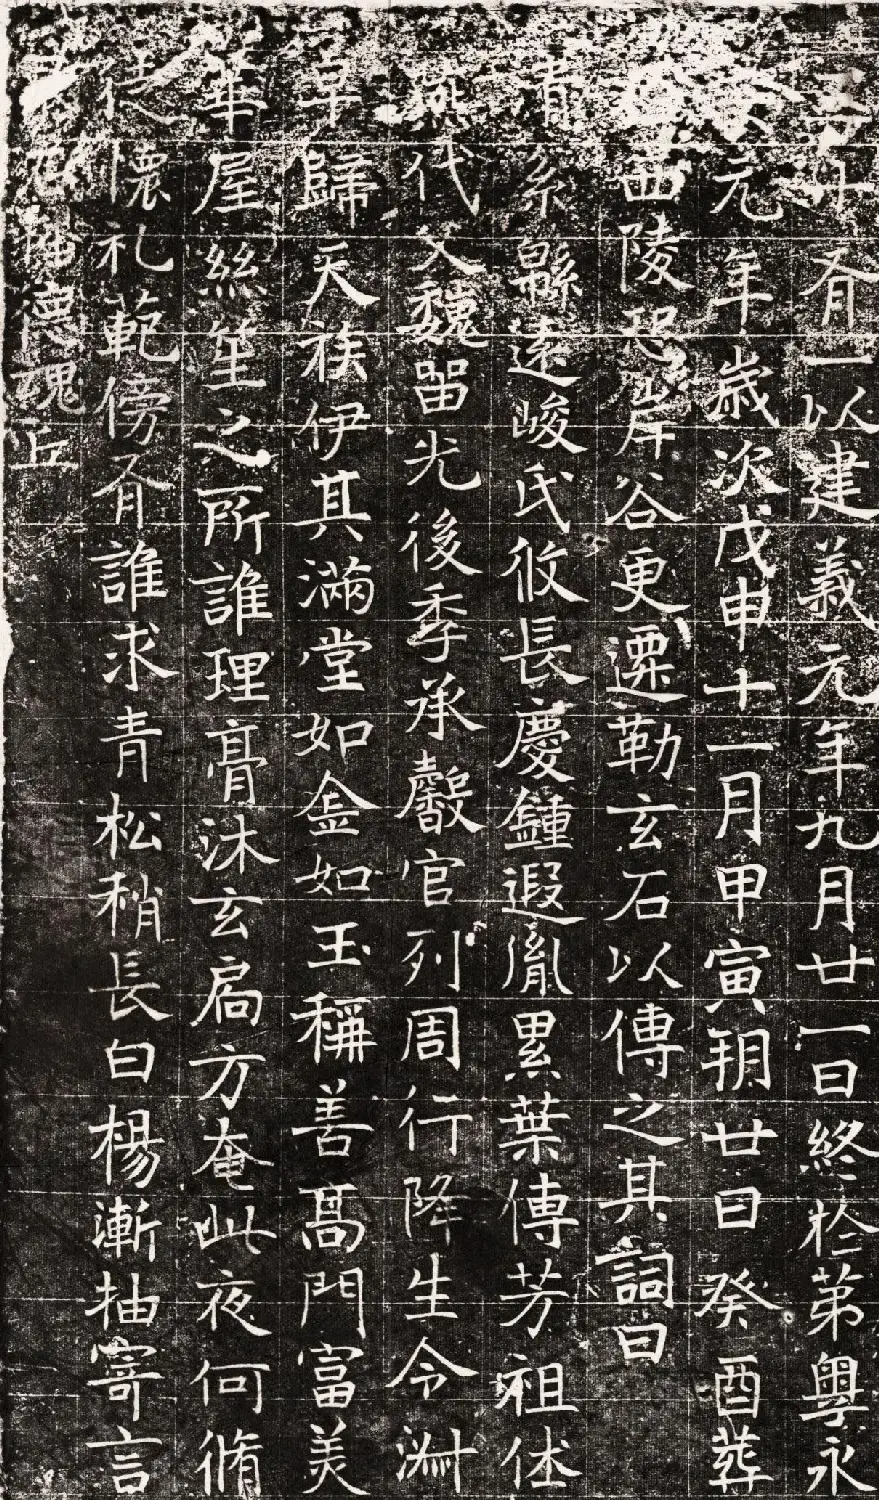 廿有一以建義元年九月廿一日終於第粵永
元年歲次戊申十一月甲寅玥廿日癸酉葬
西陵恐岸谷更遷勒玄石以傳之其詞曰
系緜遠峻氏攸長慶鍾遐胤累葉傳芳祖
燕代父魏留光後季承馨官列周行降生令淋
早歸天族伊其滿堂如金如玉稱善高門富美
華屋絲笙之所誰理膏沐玄扃方奄此夜何脩
徒懷礼範傍有誰求青松稍長白楊漸抽寄言
德魂丘